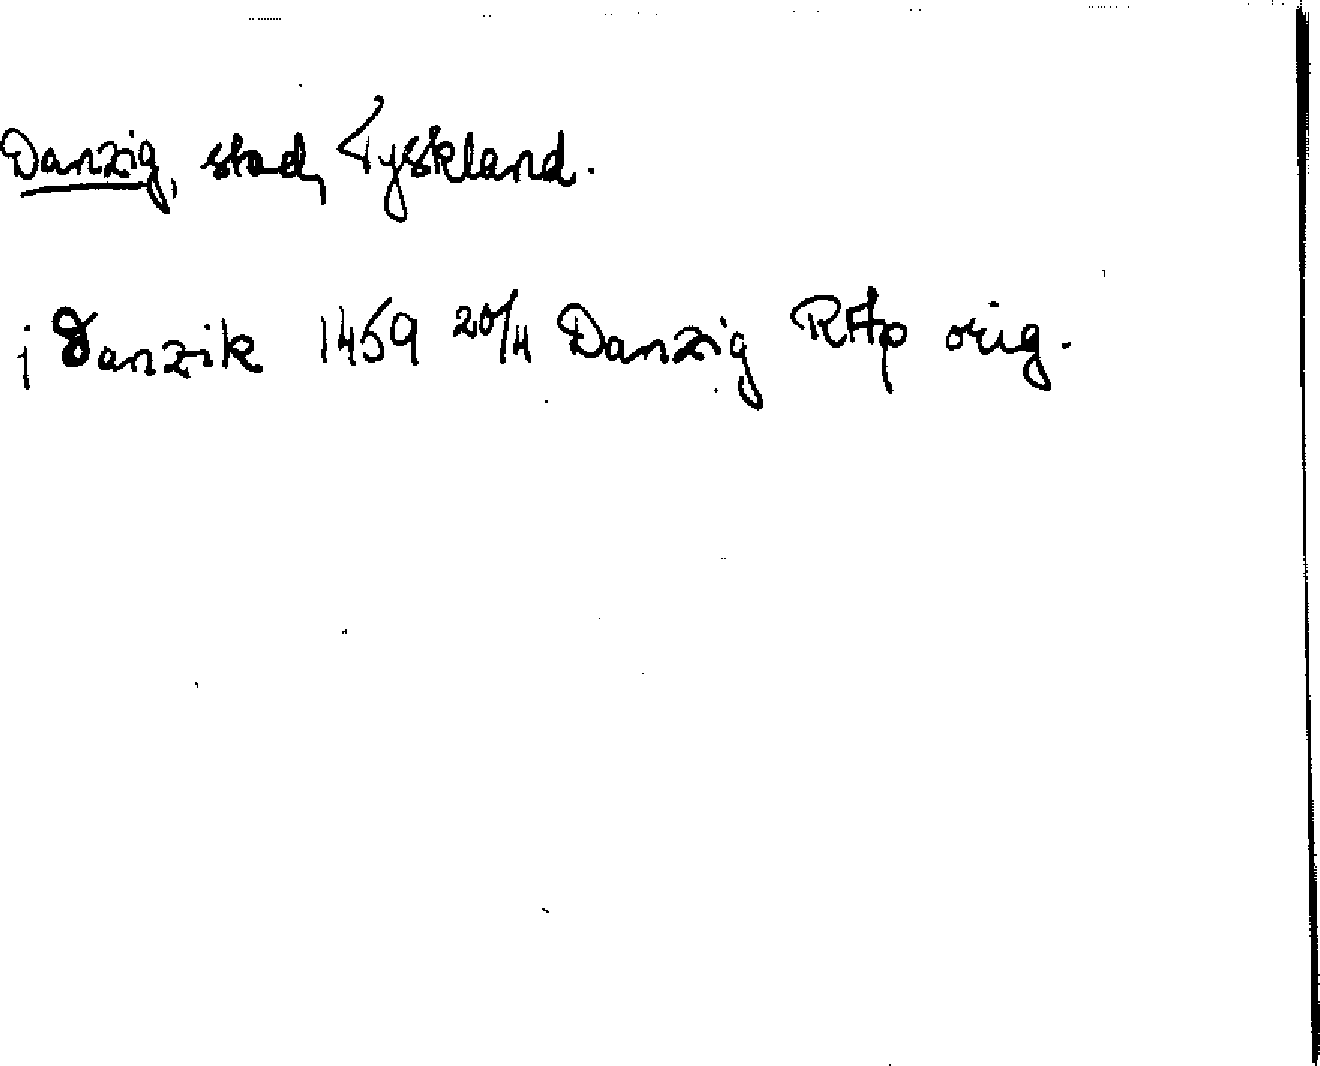 Danzig, stad, Tyskland.
j Danzik 1459 20/4 Danzig RAp orig.